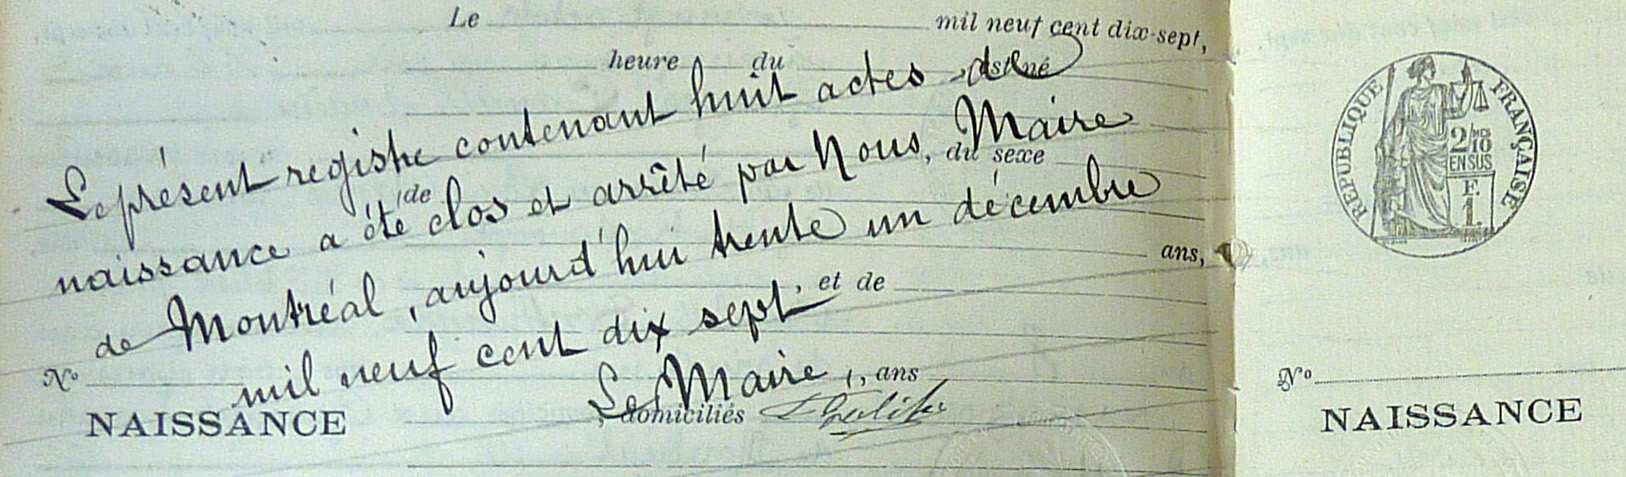 Le mil neuf cent dix-sept,
heure du est né
Le présent registre contenant huit actes de
naissance a été clos et arrêté par Nous, Maire
de du sexe
de Montréal, aujourd'hui trente un décembre
ans,
mil neuf cent dix sept
, et de
Le Maire,
, ans
domiciliés
Nº
NAISSANCE
RÉPUBLIQUE FRANÇAISE
2/10
EN SUS
F.
1.
Nº
NAISSANCE